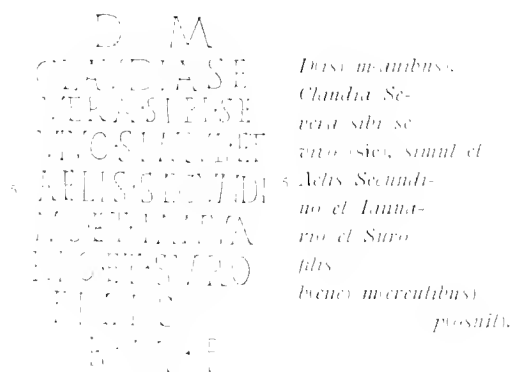 D M
CLAVDIA SE
VERA·SIBI·SE
VIVO·SIMVL·ET
5 AELIS·SECVNDI
N·O·ET·IANVA
RIO·ET·SVRO
FILIS
B M P
D(is) m(anibus).
Claudia Se-
vera sibi se
vivo (sic), simul et
5 Aelis Secundi-
no et Ianua-
rio et Suro
filis
b(ene) m(erentibus)
p(osuit).